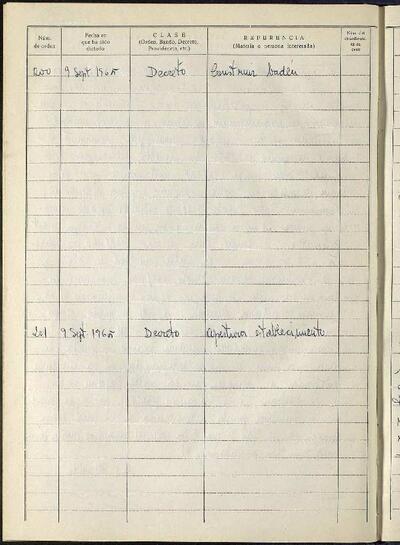 Núm. de orden
Fecha en que ha sido dictado
CLASE
(Orden, Bando, Decreto, Providencia, etc.)
REFERENCIA
(Materia o persona interesada)
Núm. del
200 9 Sept 1965 Decreto Construir badén
201 9 Sept. 1965 Decreto apertura establecimiento